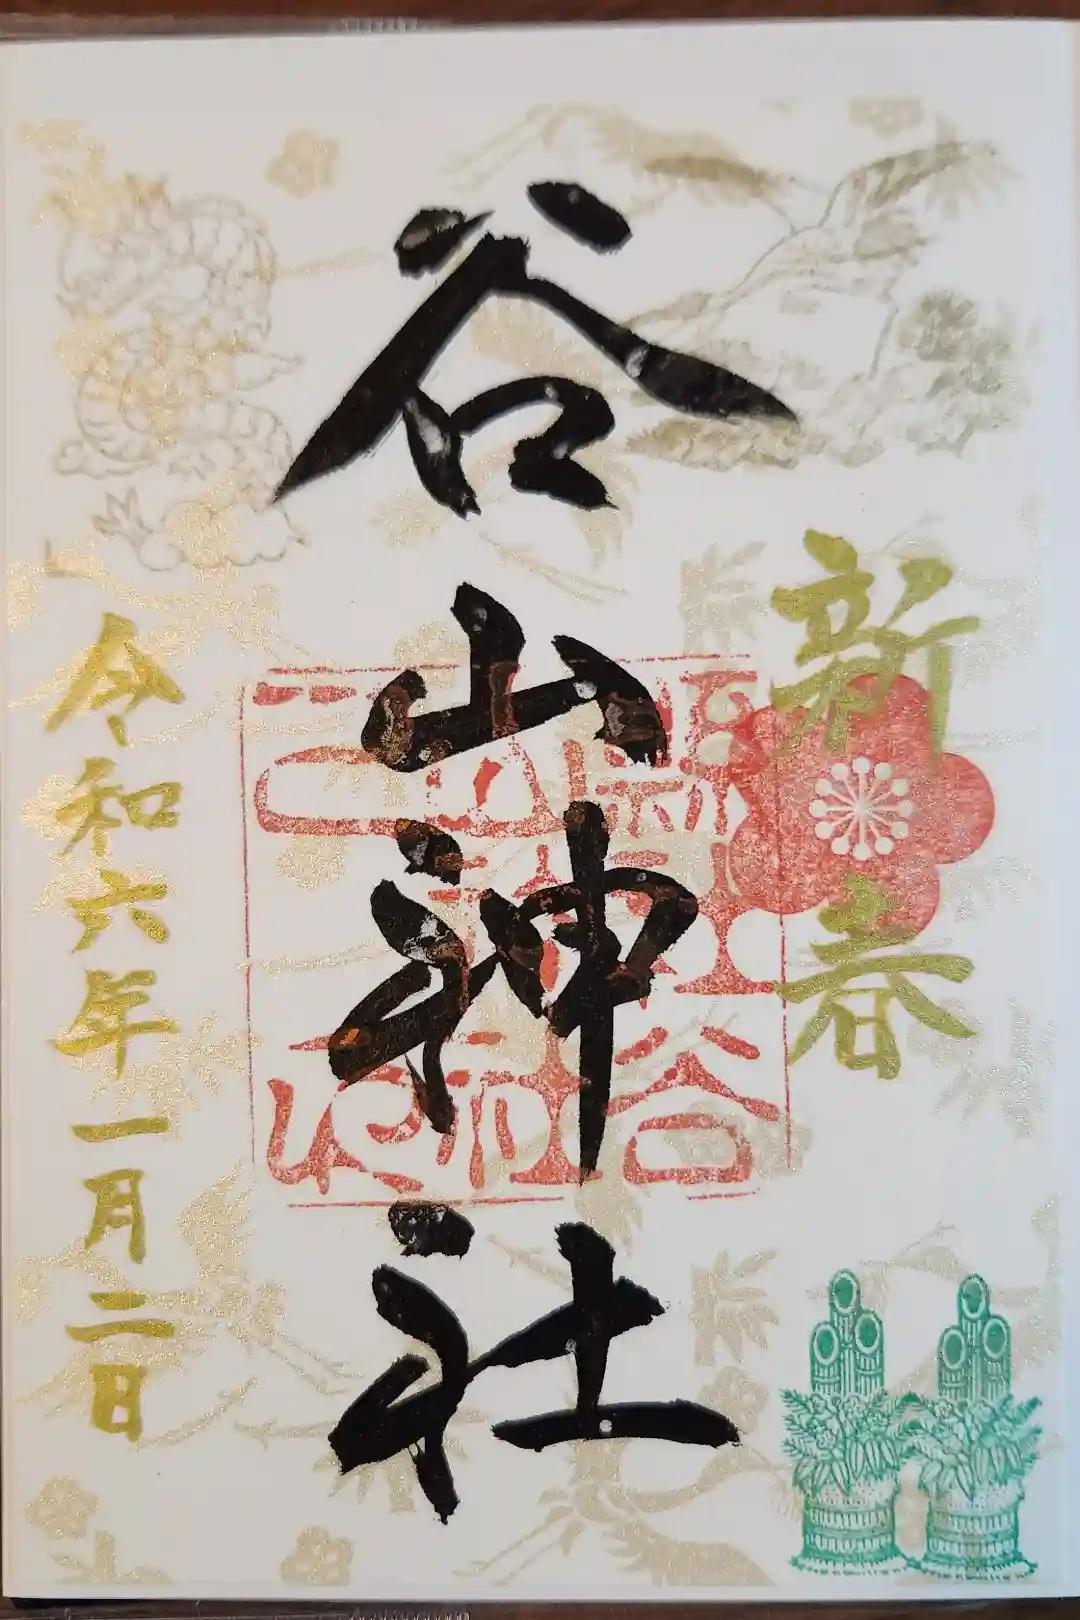 新春
谷山神社
令和六年一月二日